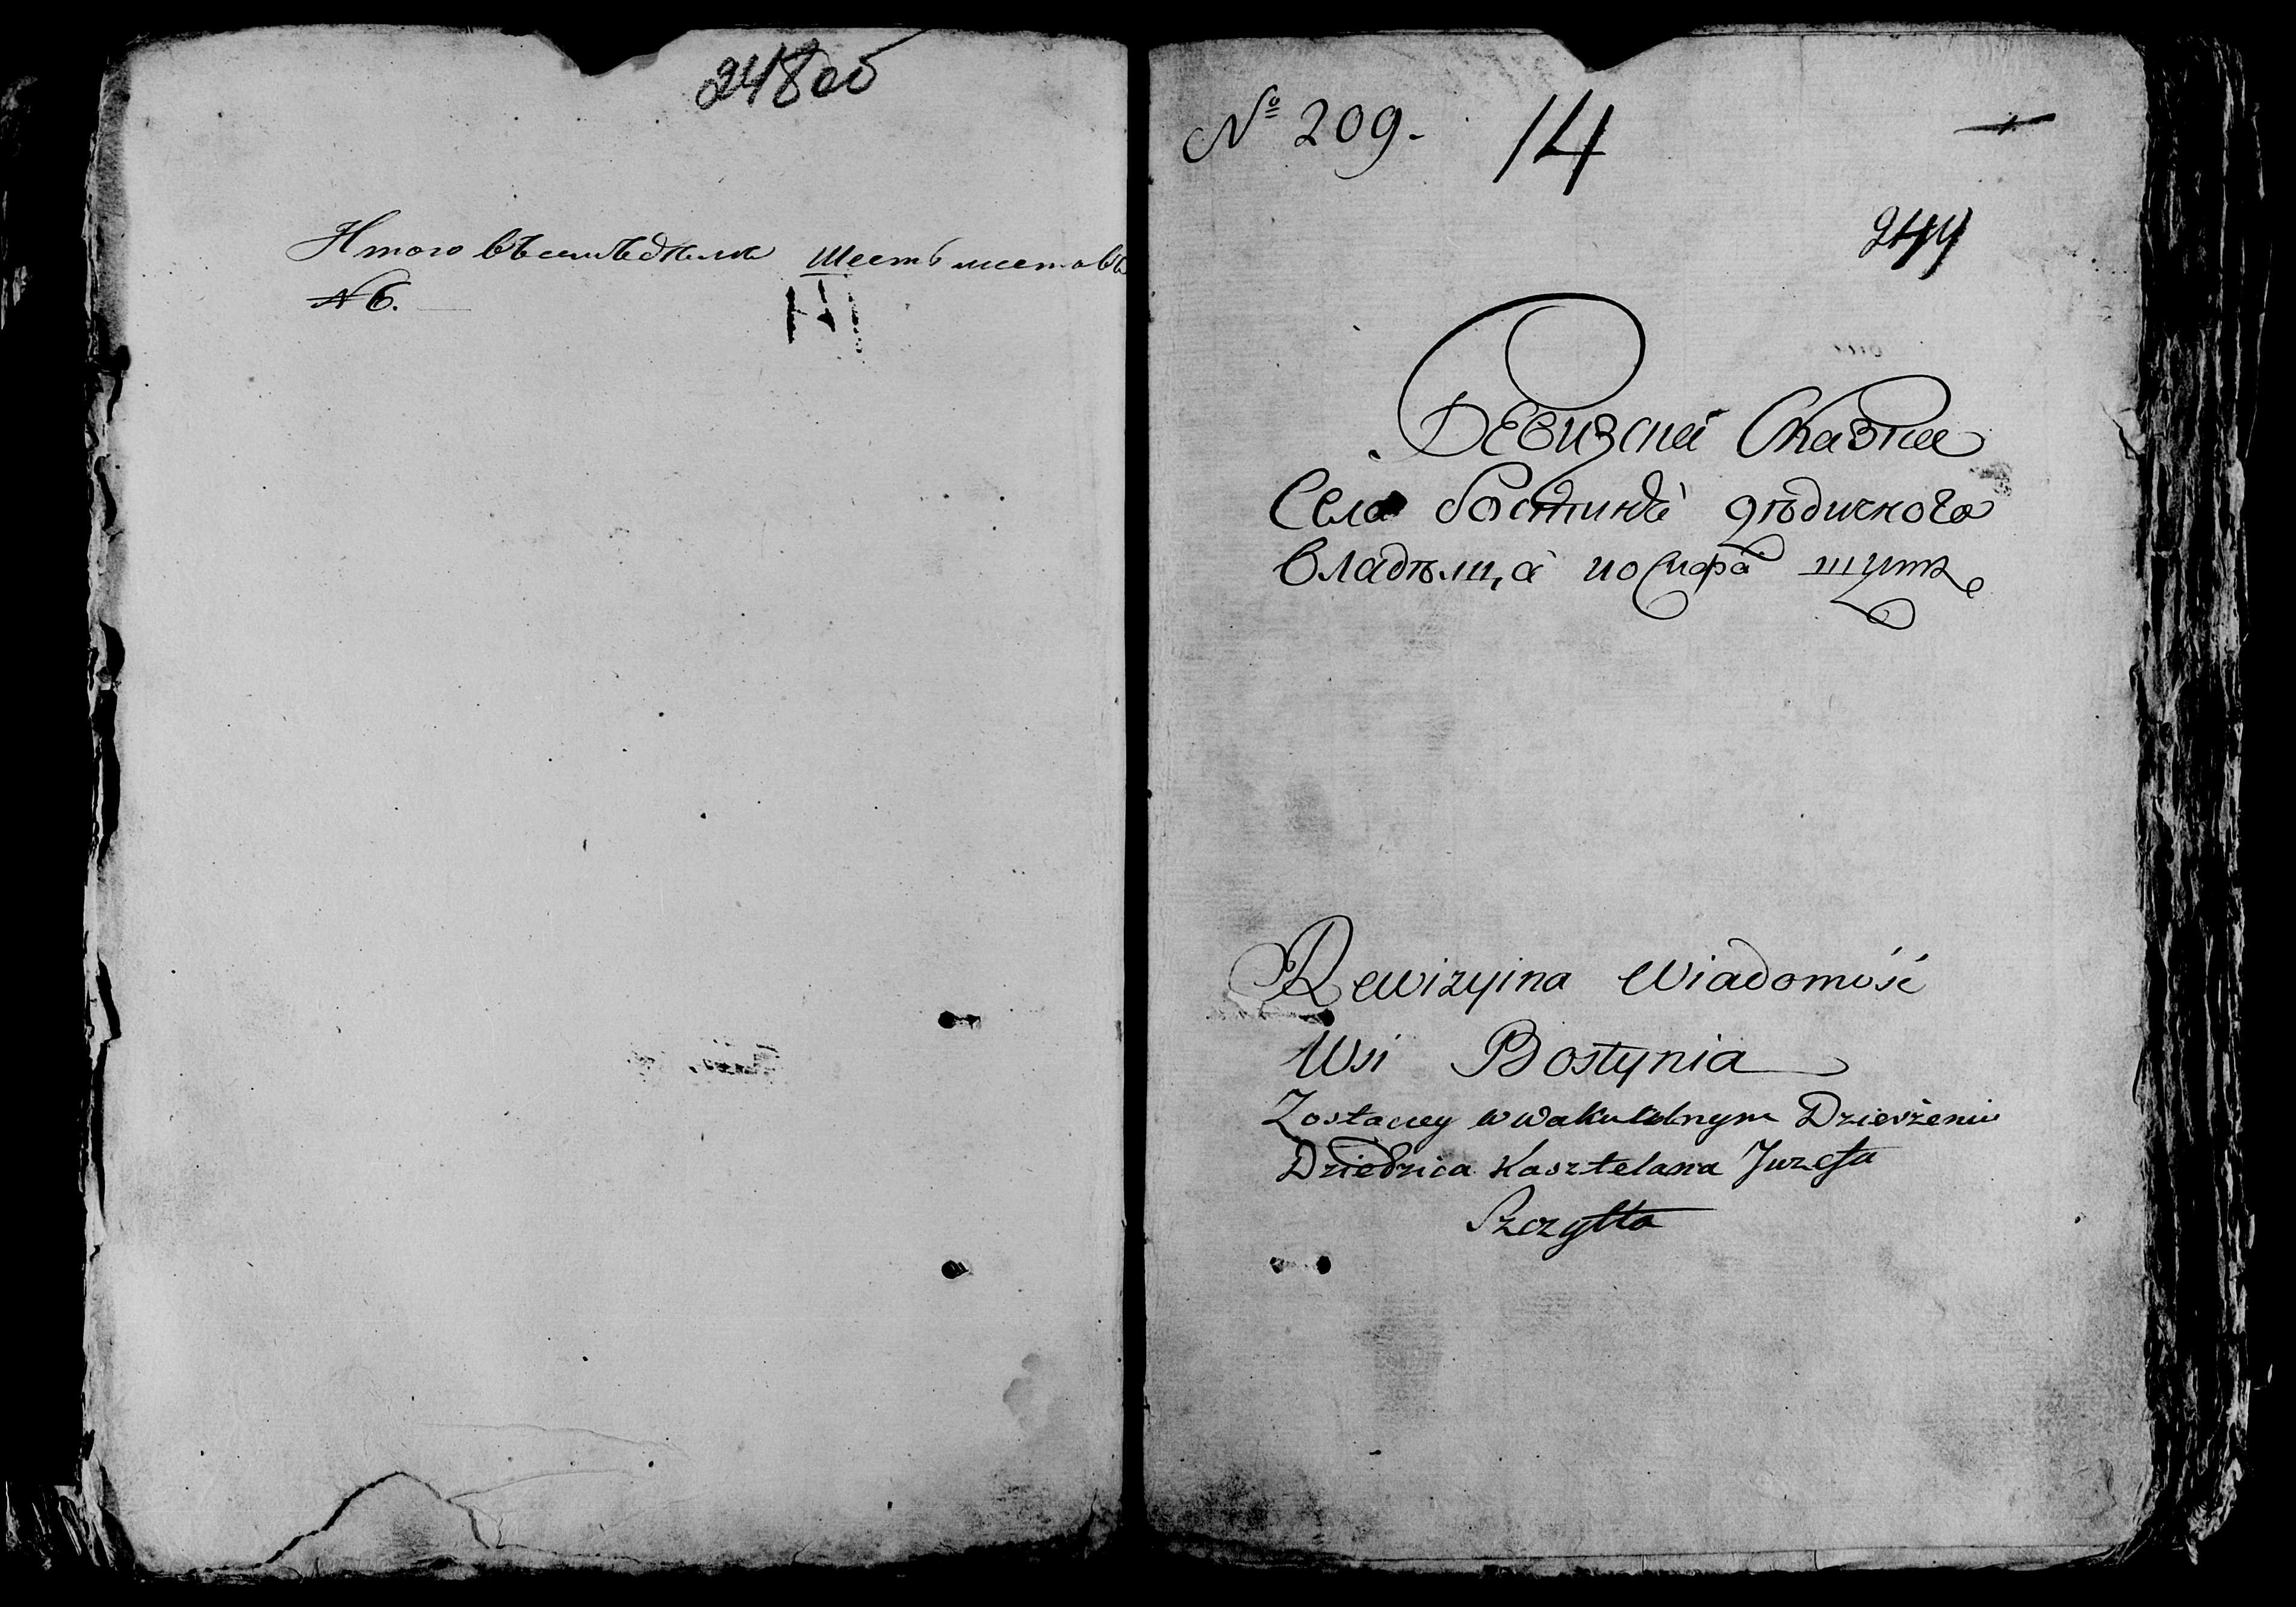 248об
Итого въ сшъ дѣлѣ шесть листовъ
№ 6.
№ 209.
14
1
249
Ревизска Сказка
Села бостинѣ дѣдичного
владѣлца иосифа щита
Rewizyina Wiadomość
Wsi Bostynia
Zostaiącey w Dzierżeniu
Dziedzica Kasztelana Juzefa
Szczytta